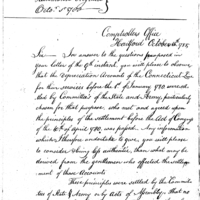 Comptrollers Office
Hartford October 6th 1788
Sir In answer to the questions proposed in
your letter of the 9th instant, you will please to observe
that the Depreciation Accounts of the Connecticut Line
for their services before the 1st of January 1780 were settled
by Committee's of the State and Army, particularly chosen
for that purpose, who met and agreed upon
the principles of the settlement before the Act of Congress
of the 10th of April 1780, was passed. Any information
which I therefore undertake to give, you will please
to consider as being less authentic, than what may be
derived from the gentlemen who effected the settlement
of those Accounts.
These principles were settled by the Committees
of State & Army or by Acts of Assembly that no